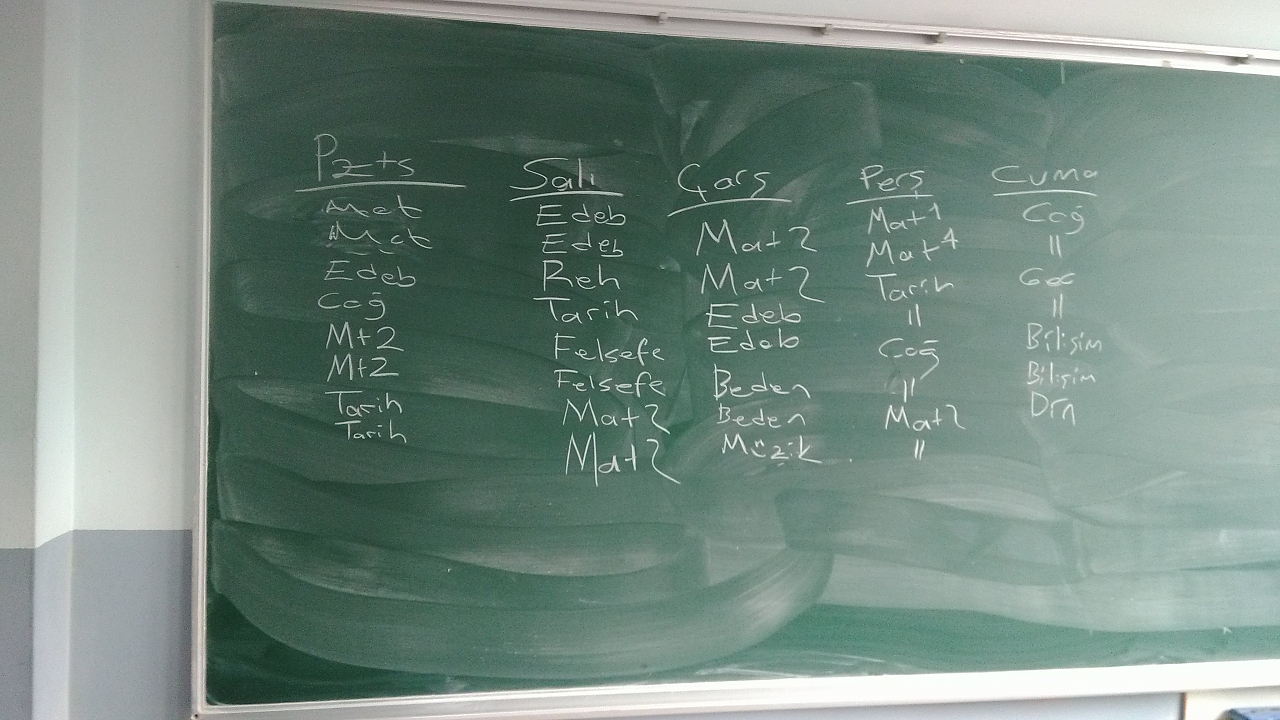 Pzts
Mat
Mat
Edeb
Coğ
Mt2
Mt2
Tarih
Tarih
Salı
Edeb
Edeb
Reh
Tarih
Felsefe
Felsefe
Mat2
Mat2
Çarş
Mat2
Mat2
Edeb
Edeb
Beden
Beden
Müzik
Perş
Mat1
Mat1
Tarih
"
Coğ
"
Mat2
"
Cuma
Coğ
"
"
Bilişim
Bilişim